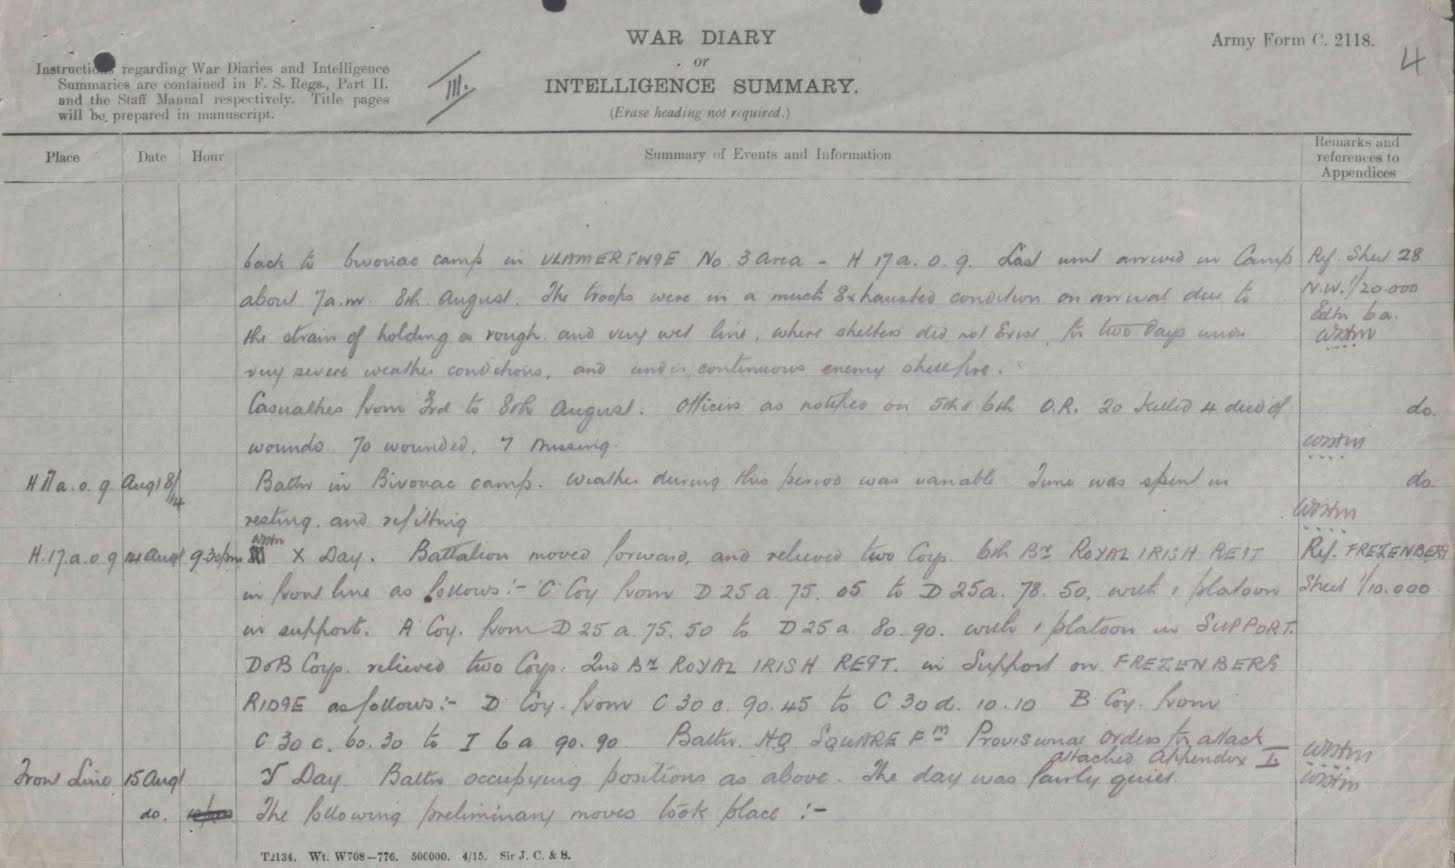 WAR DIARY
or
INTELLIGENCE SUMMARY.
(Erase heading not required.)
Army Form C. 2118.
4
Instructions regarding War Diaries and Intelligence
Summaries are contained in F. S. Regs., Part II.
and the Staff Manual respectively. Title pages
will be prepared in manuscript.
III.
Place Date Hour Summary of Events and Information Remarks and
references to
Appendices
back to bivouac camp in VLAMERTINGE No. 3 Area - H 17 a. 0. 9. Last unit arrived in Camp Ref. Sheet 28
about 7a.m. 8th August. The troops were in a much exhausted condition on arrival due to N.W. 1/20.000
the strain of holding a rough, and very wet line, where shelters did not exist, for two days under Edtn 6a.
very severe weather conditions, and under continuous enemy shellfire.
Casualties from 3rd to 8th August. Officers as notified on 5th & 6th O.R. 20 killed 4 died of do.
wounds 70 wounded, 7 missing.
H 17 a. 0. 9. Aug 8/14 Battn in Bivouac camp. Weather during this period was variable Time was spent in do.
resting, and refitting
H. 17. a. 0. 9 14 Aug 9.30pm X Day. Battalion moved forward, and relieved two Coys. 6th Bn ROYAL IRISH REGT Ref. FREZENBERG
in front line as follows:- C Coy from D 25 a 75. 05 to D 25a. 78. 50, with 1 platoon Sheet 1/10.000
in support. A Coy. from D 25 a 75. 50 to D 25 a 80. 90. with 1 platoon in SUPPORT.
D & B Coys. relieved two Coys. 2nd Bn ROYAL IRISH REGT. in Support on FREZENBERG
RIDGE as follows:- D Coy. from C 30 c. 90. 45 to C 30 d. 10. 10 B Coy. from
C 30 c. 60. 30 to I 6 a 90. 90. Battn. HQ SQUARE Fm Provisional orders for attack
attached Appendix I.
Front Line 15 Aug Y Day. Battn occupying positions as above. The day was fairly quiet.
do. The following preliminary moves took place :-
T2134. Wt. W708-776. 500000. 4/15. Sir J. C. & S.